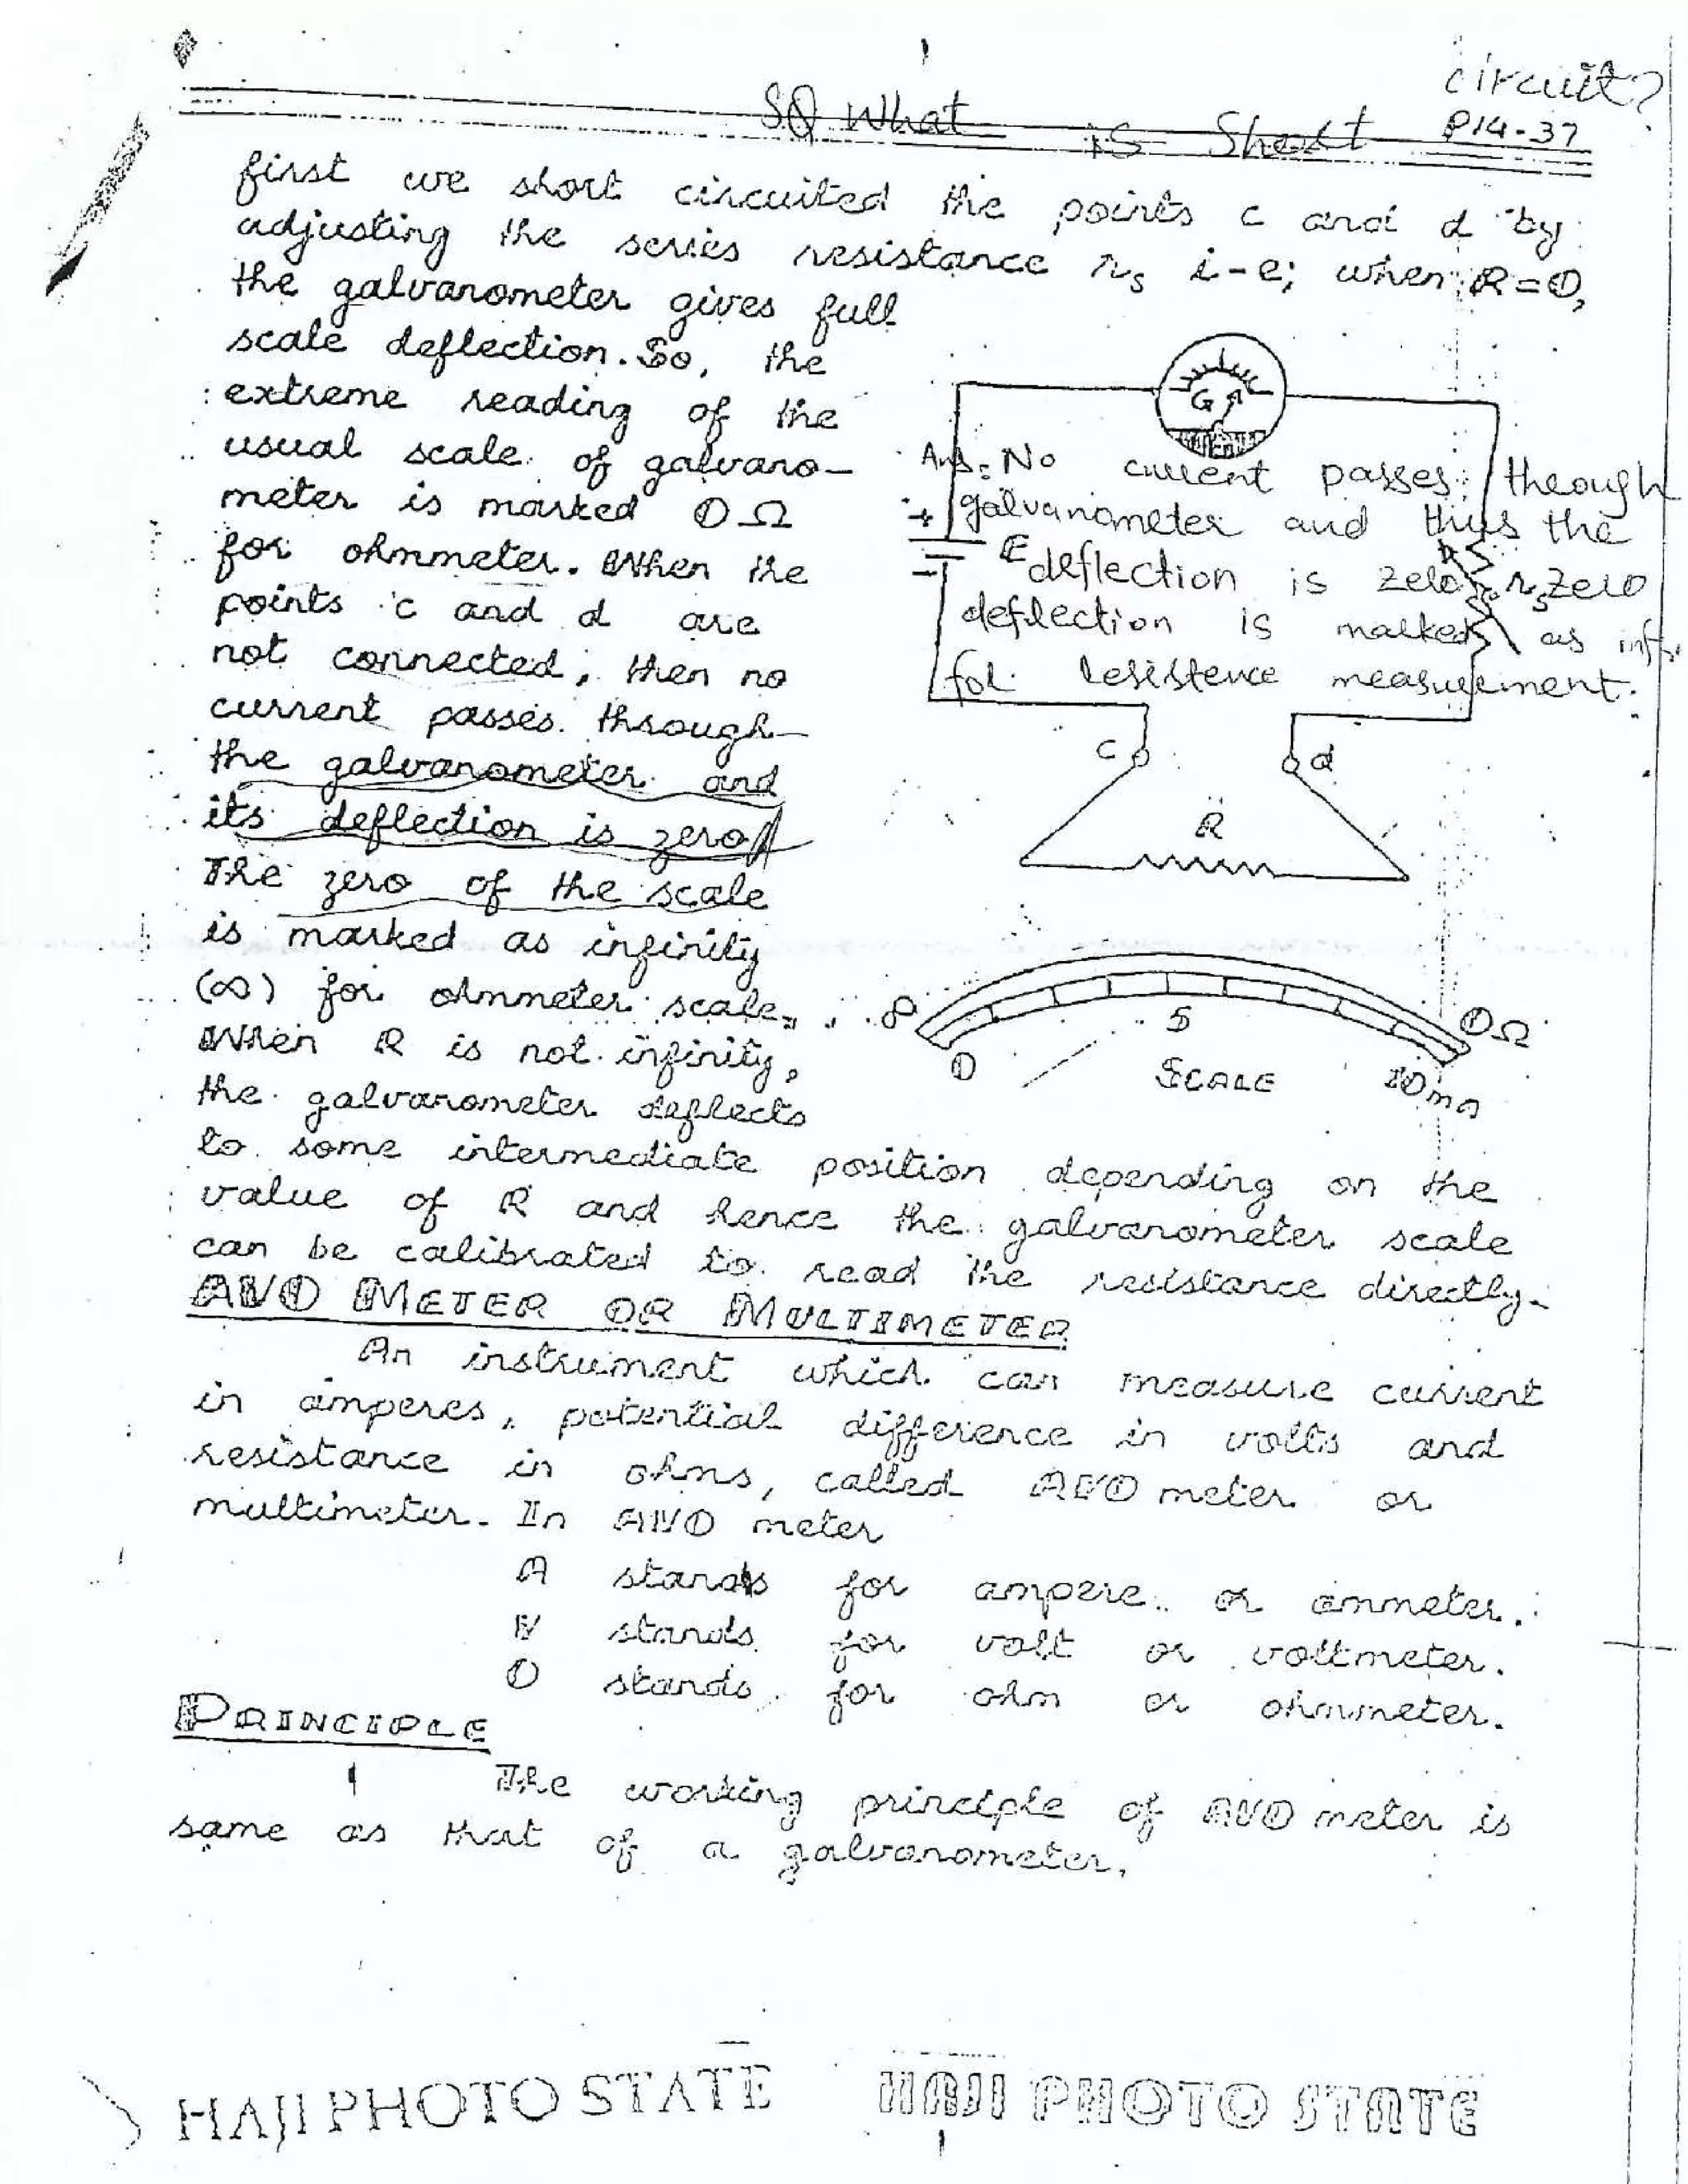 circuit?
SQ What is Short P14-37
first we short circuited the points c and d by
adjusting the series resistance rs i-e; when R=0,
the galvanometer gives full
scale deflection. So, the
extreme reading of the
usual scale of galvano-
meter is marked 0Ω
for ohmmeter. When the
points c and d are
not connected, then no
current passes through
the galvanometer and
its deflection is zero
The zero of the scale
is marked as infinity
(∞) for ohmmeter scale.
When R is not infinity,
the galvanometer deflects
to some intermediate position depending on the
value of R and hence the galvanometer scale
can be calibrated to read the resistance directly.
G
Ans: No current passes through
galvanometer and thus the
deflection is zero zero
deflection is marked as
for resistence measurement.
+
E
-
rs
c
d
R
∞
0Ω
0
5
10mA
SCALE
AVO METER OR MULTIMETER
An instrument which can measure current
in amperes, potential difference in volts and
resistance in ohms, called AVO meter or
multimeter. In AVO meter
A stands for ampere or ammeter.
V stands for volt or voltmeter.
O stands for ohm or ohmmeter.
PRINCIPLE
The working principle of AVO meter is
same as that of a galvanometer.
HAJI PHOTO STATE HAJI PHOTO STATE